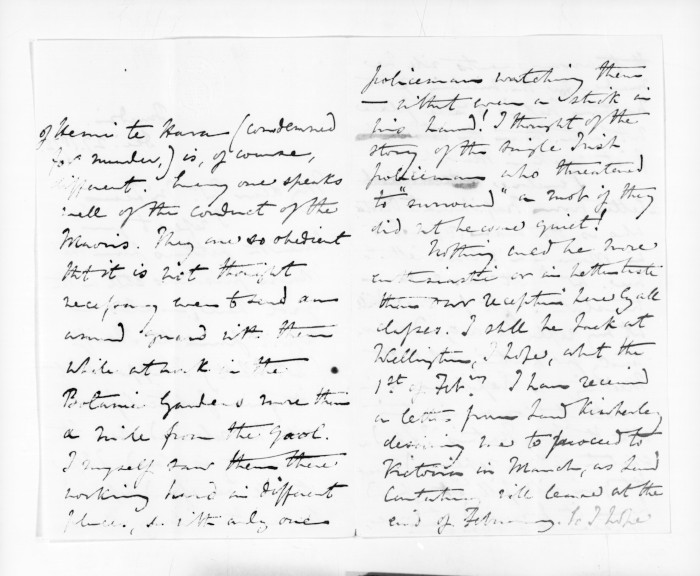 of Hemi te Hara (condemned
for murder,) is, of course,
different. Every one speaks
well of the conduct of the
Maoris. They are so obedient
tht it is not thought
necessary even to send an
armed guard with them
while at work in the
Botanic Gardens more than
a mile from the Gaol.
I myself saw them there
working hard in different
places, & with only one
policeman watching them
— without even a stick in
his hand! I thought of the
story of the single Irish
policeman who threatened
to "surround" a mob if they
did not become quiet!
Nothing could be more
enthusiastic or in better taste
than our reception here by all
classes. I shall be back at
Wellington, I hope, abt the
1st of Feby. I have received
a letter from Lord Kimberley
desiring me to proceed to
Victoria in March, as Lord
Canterbury will leave at the
end of February. So I hope